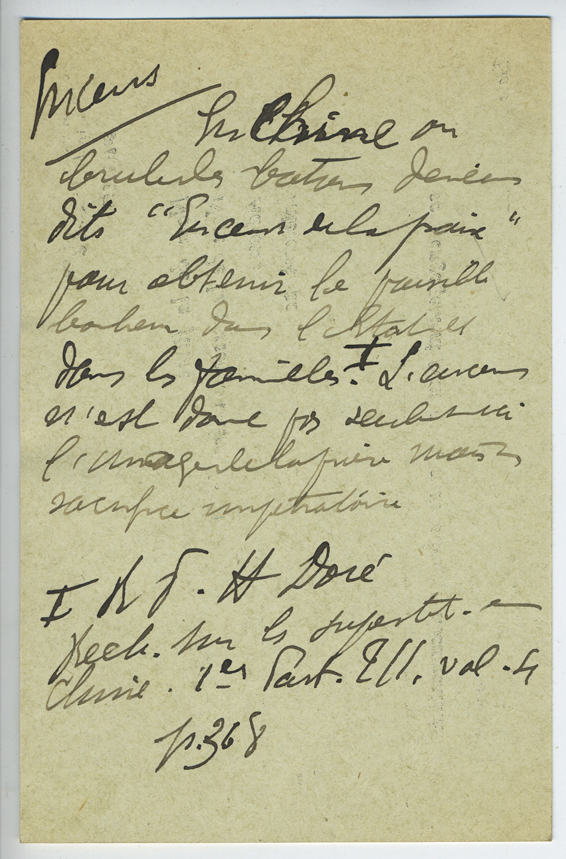 Encens
En Chine on
brule des batons d'encens
dits "Encens de la paix"
pour obtenir la paix
bonheur dans l'
dans les familles. I L'encens
n'est donc pas seulement ici
l'image de la prière mais
sacrifice impétratoire
I R P. H Doré
Rech. sur les superst. en
Chine. 1er Part. T II. vol. 4
p. 368